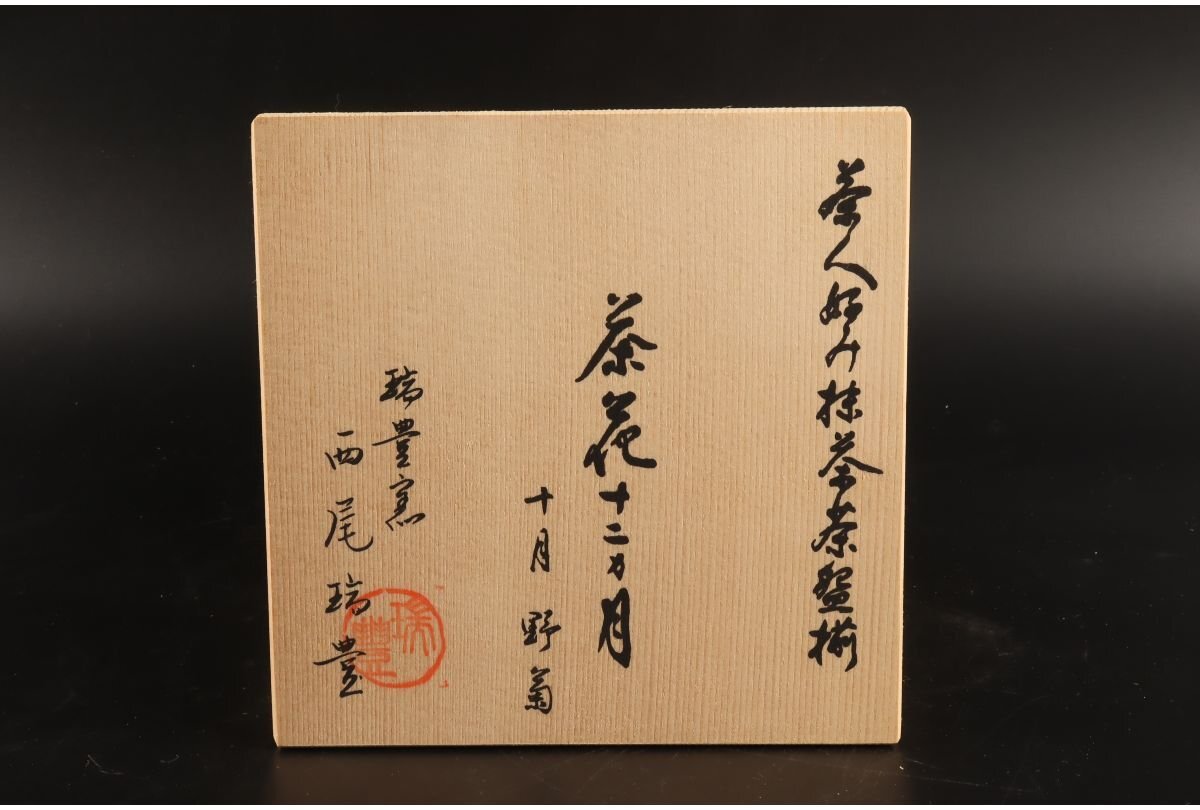 茶人好み抹茶茶盌揃
茶花十二カ月
十月 野菊
瑞豊窯
西尾瑞豊
瑞豊